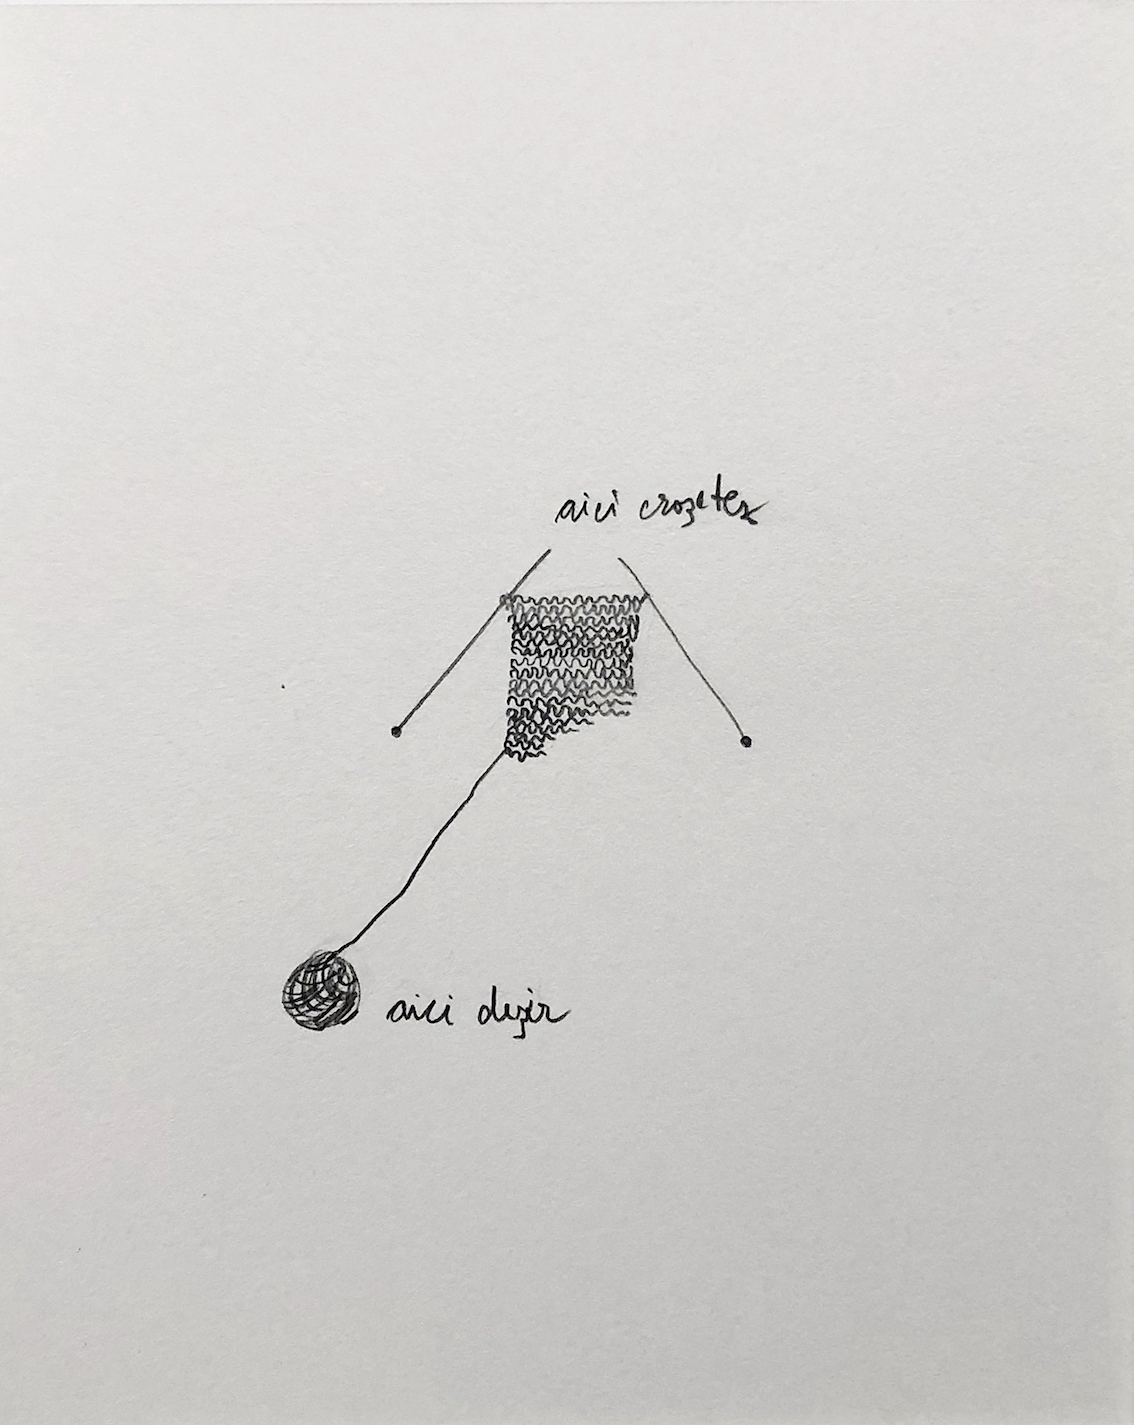 aici croșetez
aici deșir